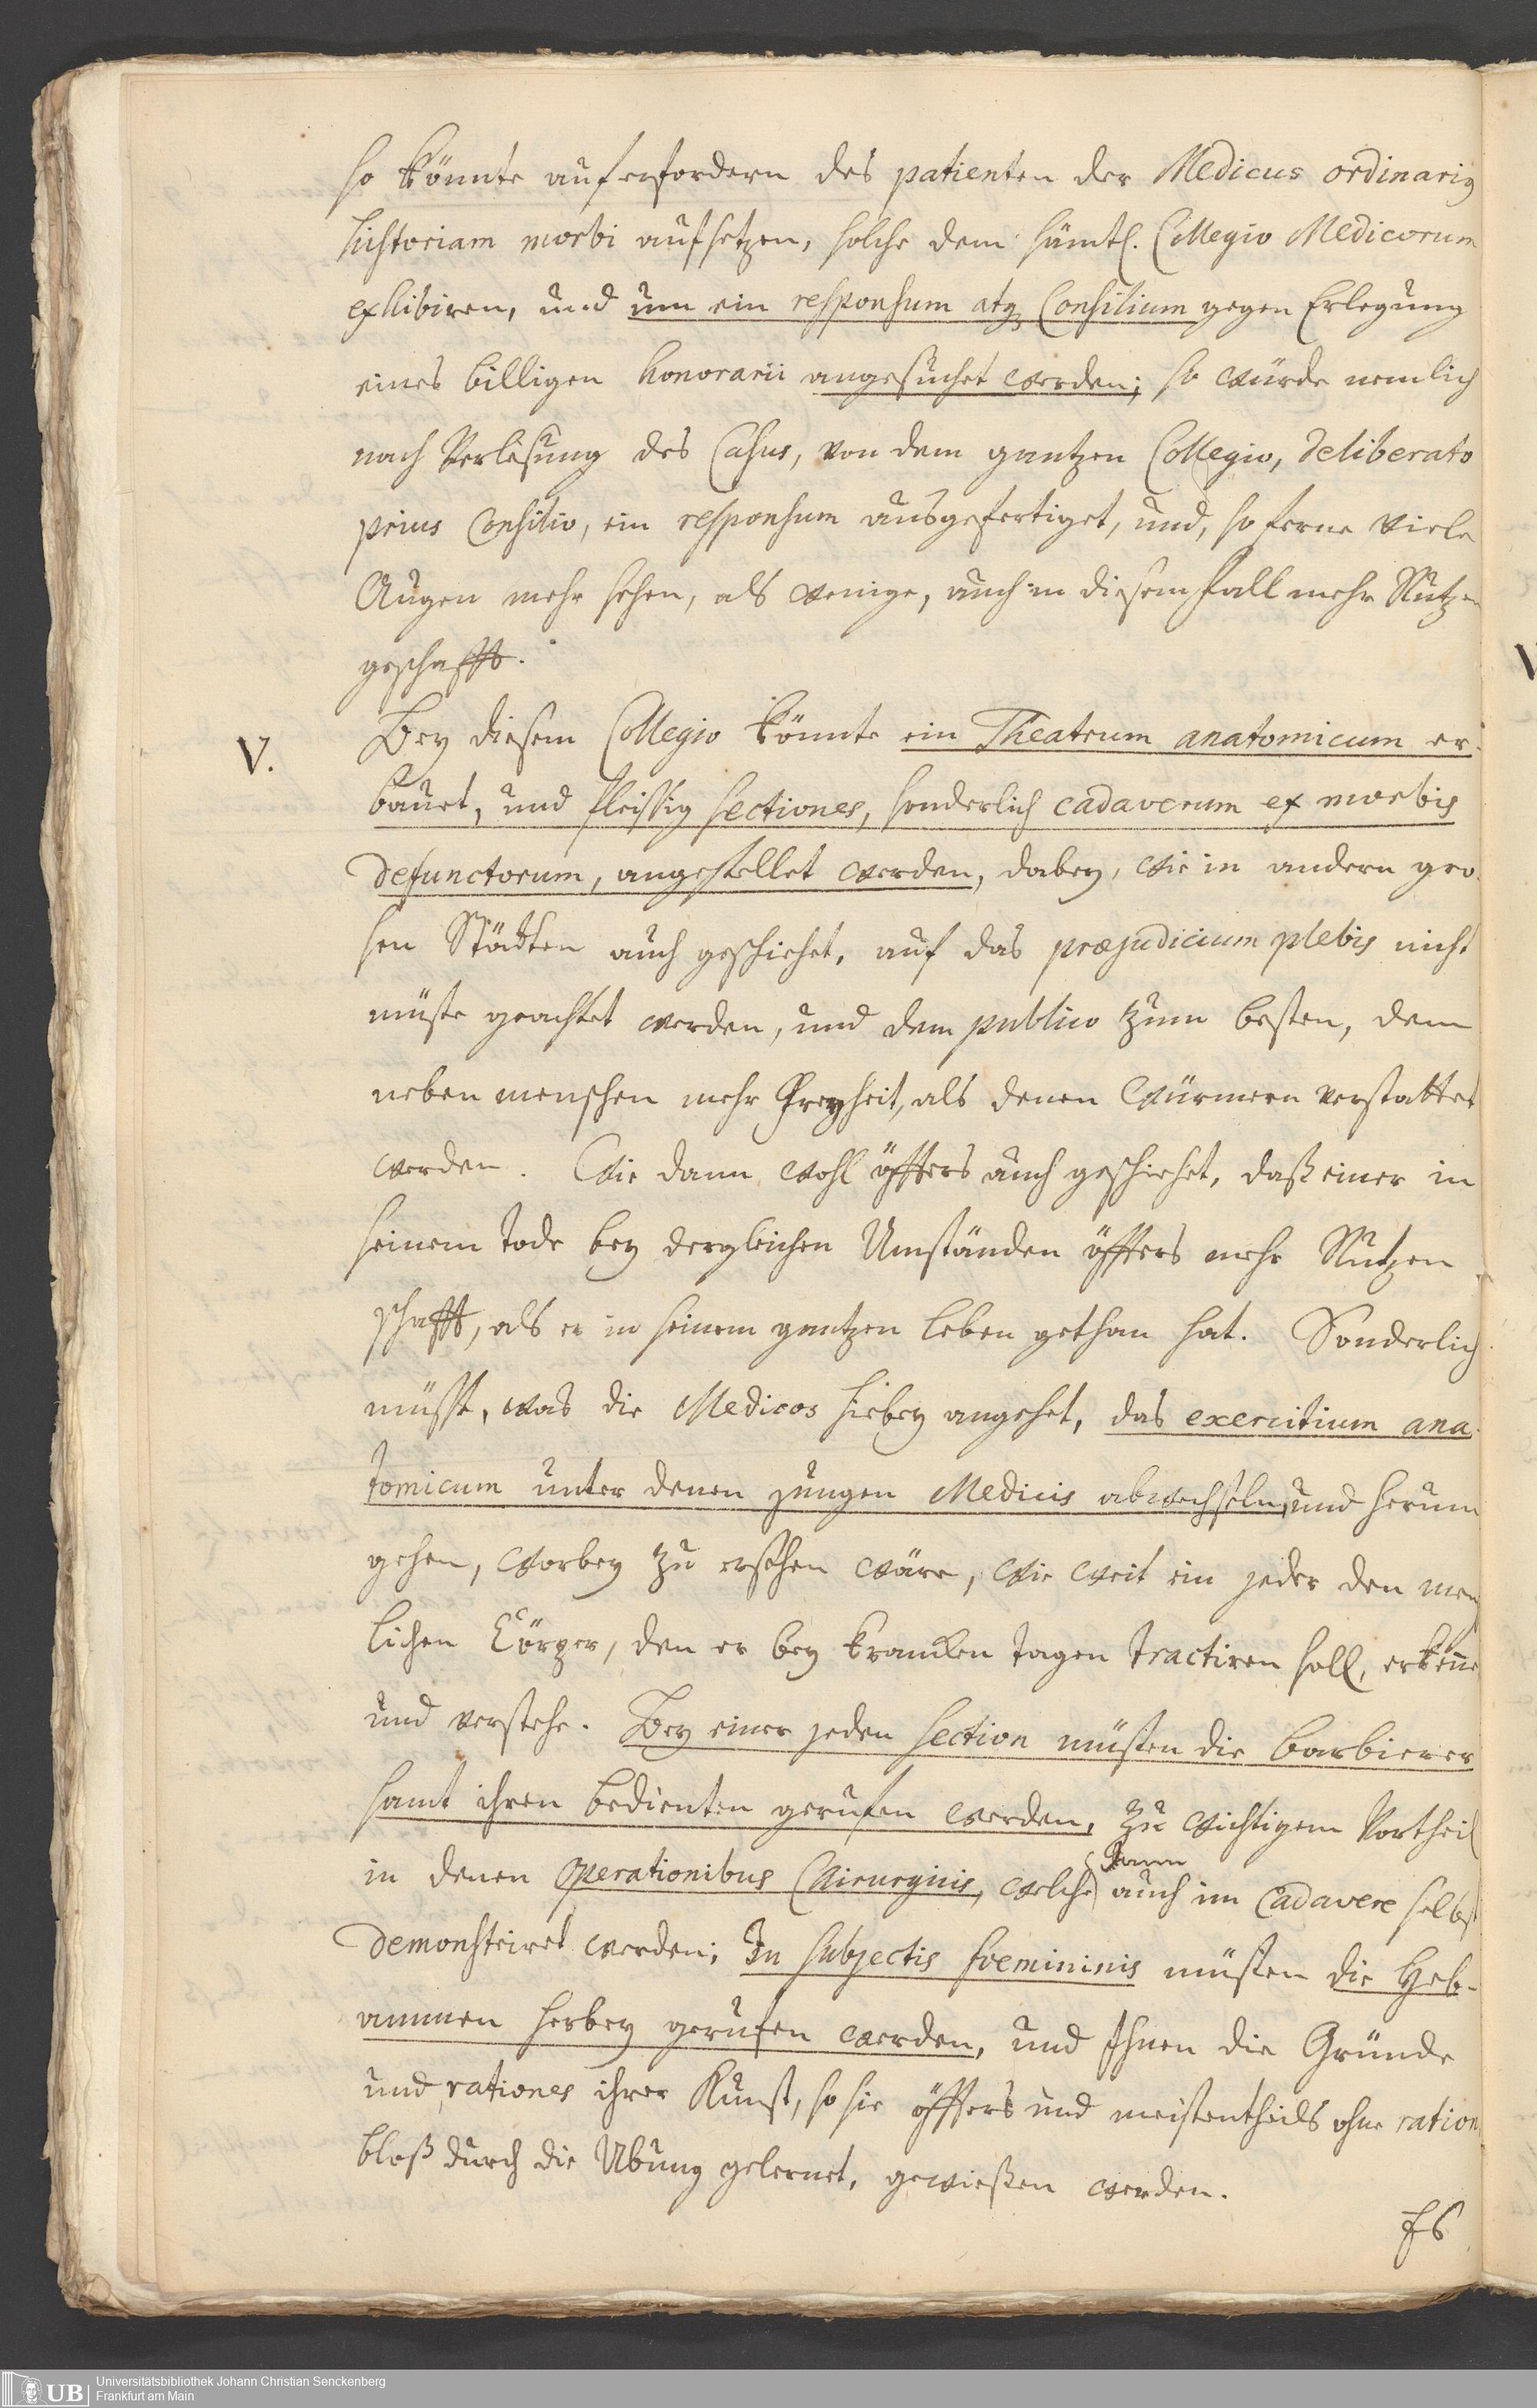 so könnte auf erfordern des patienten der Medicus ordinarig
historiam morbi aufsetzen, solche dem sämtl. Collegio Medicorum
exhibiren, und um ein responsum atq Consilium gegen Erlegung
eines billigen honorarii angesuchet werden; so würde nemlich
nach Verlesung des Casus, von dem gantzen Collegio, deliberato
prius Consilio, ein responsum ausgefertiget, und, so ferne viele
Augen mehr sehen, als wenige, auch in diesem fall mehr Nutzen
geschafft.
V. Bey diesem Collegio könnte ein Theatrum anatomicum er-
bauet, und fleissig sectiones, sonderlich cadaverum ex morbis
defunctorum, angestellet werden, dabey, wie in andern gro-
sen Städten auch geschiehet, auf das præjudicium plebis nicht
müste geachtet werden, und dem publico zum besten, dem
neben menschen mehr Freyheit, als denen Würmern verstattet
werden. Wie dann wohl öffters auch geschiehet, daß einer in
seinem Tode bey dergleichen Umständen öffters mehr Nutzen
schafft, als er in seinem gantzen leben gethan hat. Sonderlich
müsste, was die Medicos hiebey angehet, das exercitium ana-
tomicum unter denen jungen Medicis abwechseln, und herum
gehen, worbey zu ersehen wäre, wie weit ein jeder den men
lichen Cörper, den er bey krancken tagen tractiren soll, erkenne
und verstehe. Bey einer jeden Section müsten die barbierer
samt ihren bedienten gerufen werden, zu wichtigem Vortheil
in denen Operationibus Chirurgicis, welche dann auch im Cadavere selbst
demonstriret werden; In subjectis foemininis müsten die Heb-
ammen herbey gerufen werden, und Ihnen die Gründe
und rationes ihrer Kunst, so sie öffters und meistentheils ohne ration
bloß durch die Ubung gelernet, gewießen werden.
Es
Universitätsbibliothek Johann Christian Senckenberg
Frankfurt am Main
UB